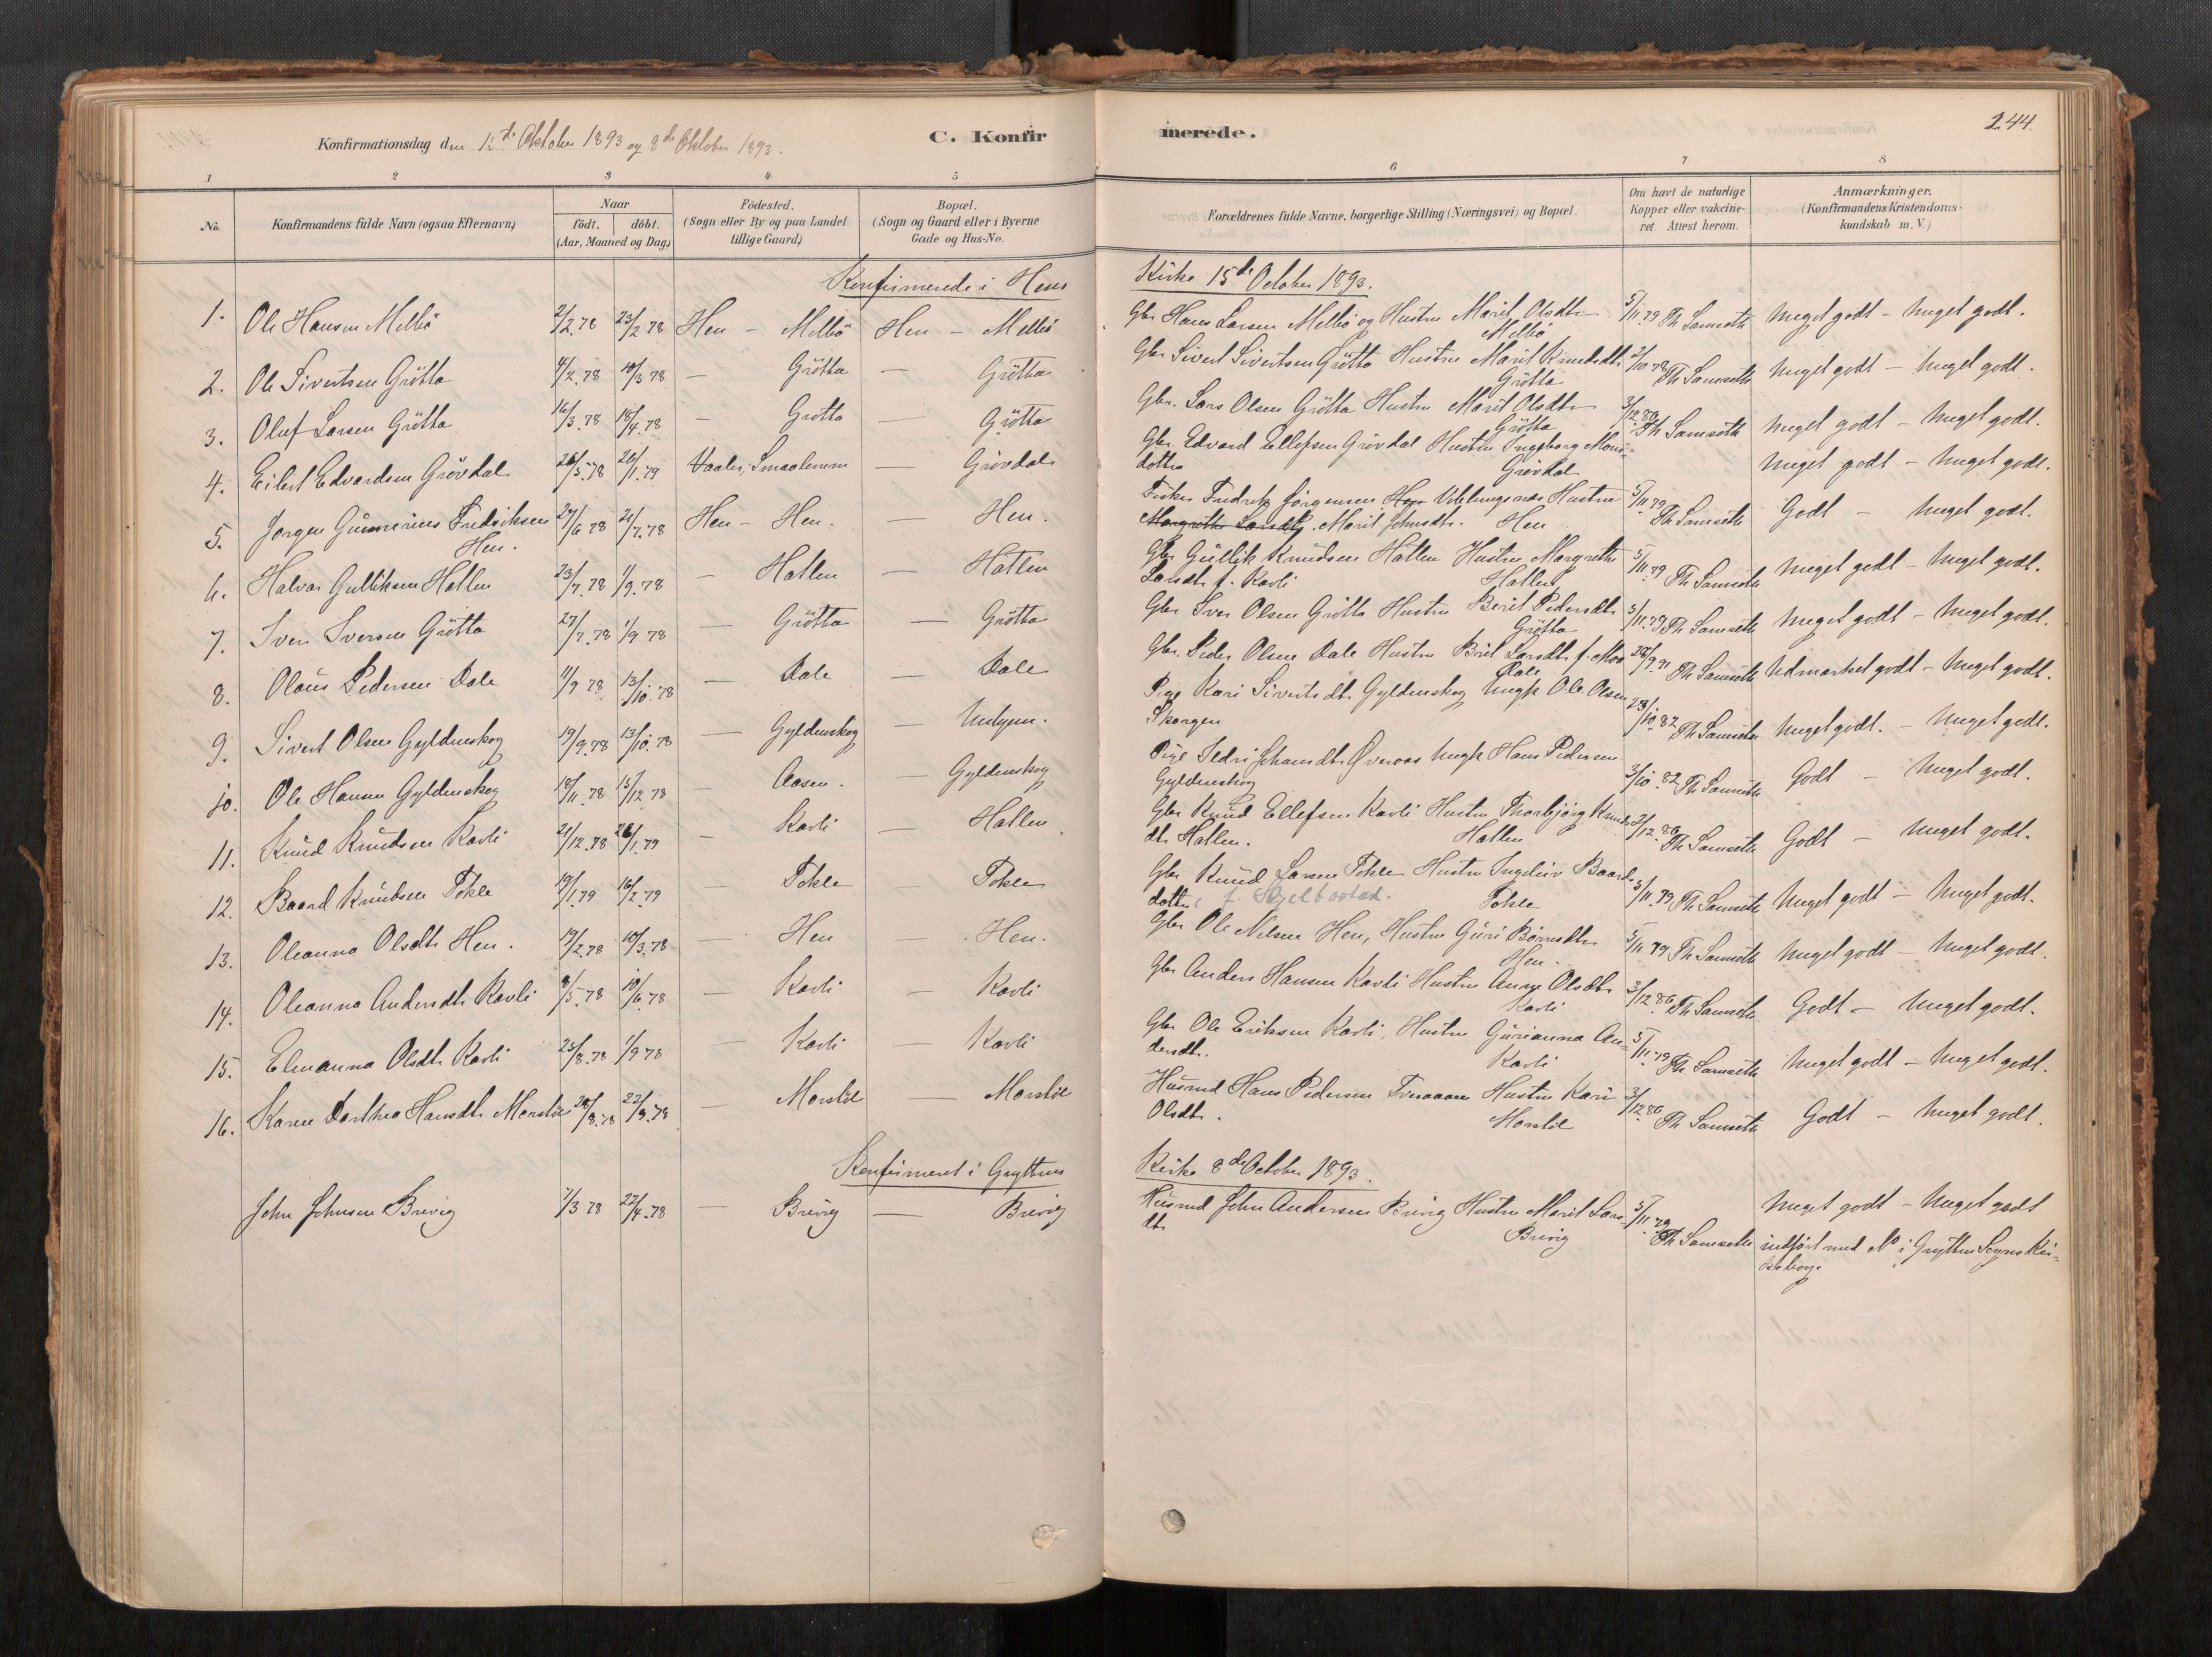 244.
Konfirmationsdag den 15de Oktober 1893 og 8de Oktober 1893.
C. Konfirmerede.
1 2 3 4 5 6 7 8
No. Konfirmandens fulde Navn (ogsaa Efternavn) Naar födt. döbt. (Aar, Maaned og Dag) Födested. (Sogn eller By og paa Landet tillige Gaard) Bopæl. (Sogn og Gaard eller i Byerne Gade og Hus-No. Forældrenes fulde Navne, borgerlige Stilling (Næringsvei) og Bopæl. Om havt de naturlige Kopper eller vakcineret Attest herom. Anmærkninger. (Konfirmandens Kristendomskundskab m. V.)
Konfirmerede i Hens Kirke 15de October 1893.
1. Ole Hansen Melbö 2/2.78 23/2 78 Hen - Melbö Hen - Melbö Gbr Hans Larsen Melbö og Hustru Marit Olsdtr Melbö 5/11 79 Th Samseth Meget godt - Meget godt.
2. Ole Sivertsen Grötta 4/2.78 10/3 78 — Grötta — Grötta Gbr Sivert Sivertsen Grötta Hustru Marit Knudsdtr Grötta 3/10 78 Th Samseth Meget godt - Meget godt.
3. Oluf Larsen Grötta 16/3.78 18/4.78 — Grotta — Grötta Gbr. Lars Olsen Grötta Hustru Marit Olsdtr Grötta 3/12 86 Th Samseth Meget godt - Meget godt.
4. Eilert Edvardsen Grövdal 26/5.78 26/1.79 Vaaler, Smaalenene — Grövdal Gbr Edvard Ellefsen Grövdal Hustru Ingeborg Monsdotter Grövdal Meget godt - Meget godt.
5. Jorgen Gunnerius Fredriksen Hen. 27/6 78 21/7.78 Hen - Hen. — Hen. Fisker Fredrik Jörgensen Hen Veblungsnæs Hustru Margrethe Larsdtr. Marit Johnsdtr. Hen 5/11 79 Th Samseth Godt - Meget godt.
6. Halvor Gulliksen Hatlen 23/7.78 1/9.78 — Hatlen — Hatlen Gbr Gullik Knudsen Hatlen Hustru Margrethe Larsdtr f. Kavli Hatlen 5/11 79 Th Samseth Meget godt - Meget godt.
7. Iver Iversen Grötta 27/7.78 1/9 78 — Grötta — Grötta Gbr Iver Olsen Grötta Hustru Berit Pedersdtr Grötta 5/11.79 Th Samseth Meget godt - Meget godt.
8. Olaus Pedersen Dale 11/9 78 13/10.78 — Dale — Dale Gbr. Peder Olsen Dale Hustru Brit Larsdtr f. Moa Dale 26/9.91 Th Samseth Udmærket godt - Meget godt.
9. Sivert Olsen Gyldenskog 19/9.78 13/10.78 — Gyldenskog — Pige Kari Sivertsdtr Gyldenskog Ungk Ole Olsen Skorgen 23/10 82 Th Samseth Meget godt. - Meget godt.
10. Ole Hansen Gyldenskog 18/11.78 15/12 78 — Aasen. — Gyldenskog Pige Sedri Johansdtr Øveraas Ungk Hans Pedersen Gyldenskog 3/10 82 Th Samseth Godt - Meget godt.
11. Knud Knudsen Kavli 21/12.78 26/1.79 — Kavli — Hatlen Gbr Knud Ellefsen Kavli Hustru Thorbjörg Knudsdtr Hatlen. Hatlen 3/12.86 Th Samseth Godt - Meget godt.
12. Baard Knudsen Tokle 19/1.79 16/2.79 — Tokle Tokle Gbr Knud Larsen Tokle Hustru Ingeleiv Baardsdotter f. Skjelbostad. Tokle 5/11.79 Th Samseth Meget godt - Meget godt.
13. Oleanna Olsdtr Hen. 19/2.78 10/3.78 — Hen — Hen. Gbr Ole Nilsen Hen, Hustru Guri Börresdtr Hen. 5/11 79 Th Samseth Meget godt - Meget godt.
14. Oleanna Andersdtr Kavli 8/5.78 10/6.78 — Kavli — Kavli Gbr Anders Hansen Kavli Hustru Anne Olsdtr Kavli 3/12 86 Th Samseth Godt - Meget godt.
15. Elenanna Olsdtr Kavli 25/8.78 1/9 78 — Kavli — Kavli Gbr Ole Eriksen Kavli, Hustru Gurianna Andersdtr. Kavli 5/11.79 Th Samseth Meget godt - Meget godt.
16. Karen Dorthea Hansdtr Morstöl 28/8.78 22/9.78 — Morstöl — Morstöl Husmd Hans Pedersen Hustru Kari Olsdtr. Morstöl 3/12 86 Th Samseth Godt - Meget godt.
Konfirmeret i Gryttens Kirke 8de October 1893.
John Johnsen Brevig 7/3 78 22/4.78 — Brevig — Brevig Husmd John Andersen Brevig Hustru Marit Larsdtr Brevig 5/11 79 Th Samseth Meget godt - Meget godt
indfört med No i Grytten Sogns Kirkebog.